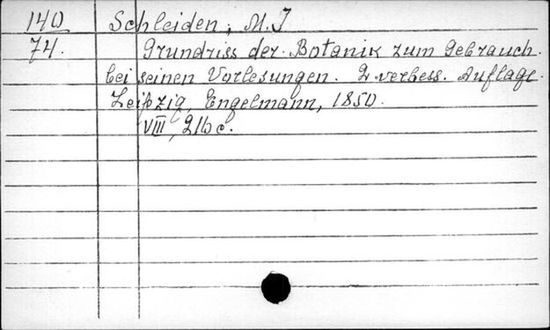 140 Schleiden, M. J
74. Grundriss der Botanik zum Gebrauch.
bei seinen Vorlesungen. 2. verbess. Auflage.
Leipzig, Engelmann, 1850.
VIII, 216 c.